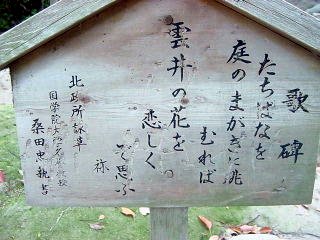 歌碑
たちばなを
庭のまがきに兆
むれば
雲井の花を
恋しく
思ふ
祢
北政所詠草
国学院大学
桑田忠親書